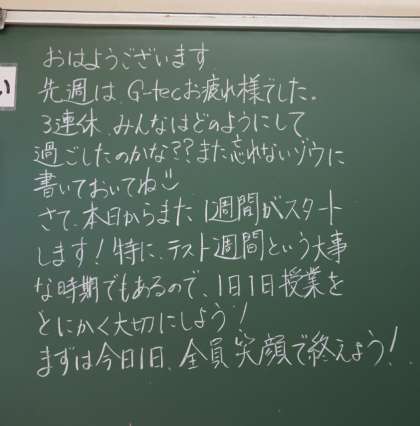 い
おはようございます
先週は、G-tecお疲れ様でした。
3連休、みんなはどのようにして
過ごしたのかな??また忘れないゾウに
書いておいてね
さて、本日からまた1週間がスタート
します!特に、テスト週間という大事
な時期でもあるので、1日1日授業を
とにかく大切にしよう!
まずは今日1日、全員笑顔で終えよう!